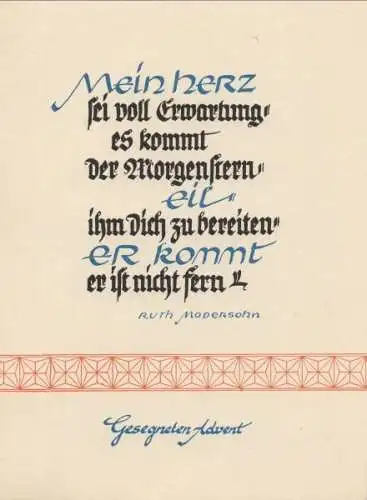 Mein Herz
sei voll Erwartung=
es kommt
der Morgenstern=
eil=
ihm Dich zu bereiten=
ER kommt
er ist nicht fern
RUTH MODERSOHN
Gesegneten Advent